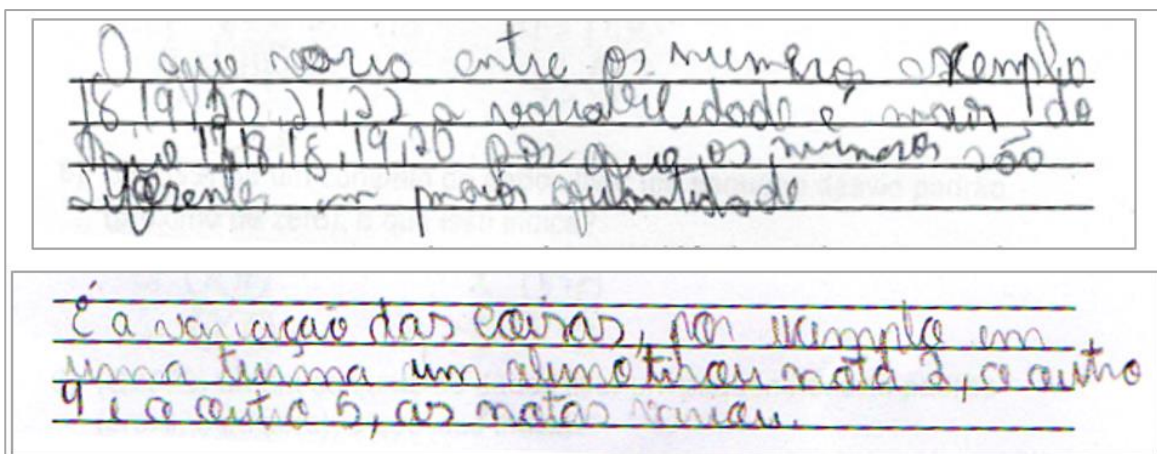 O que varia entre os numeros exemplo
18,19,20,21,22 a variabilidade é mair do
que 17,18,18,19,20 por que os numeros são
diferentes em maior quantidade
É a variação das coisas, por exemplo em
uma turma um aluno tirou nota 2, o outro
9 e o outro 5, as notas variou.